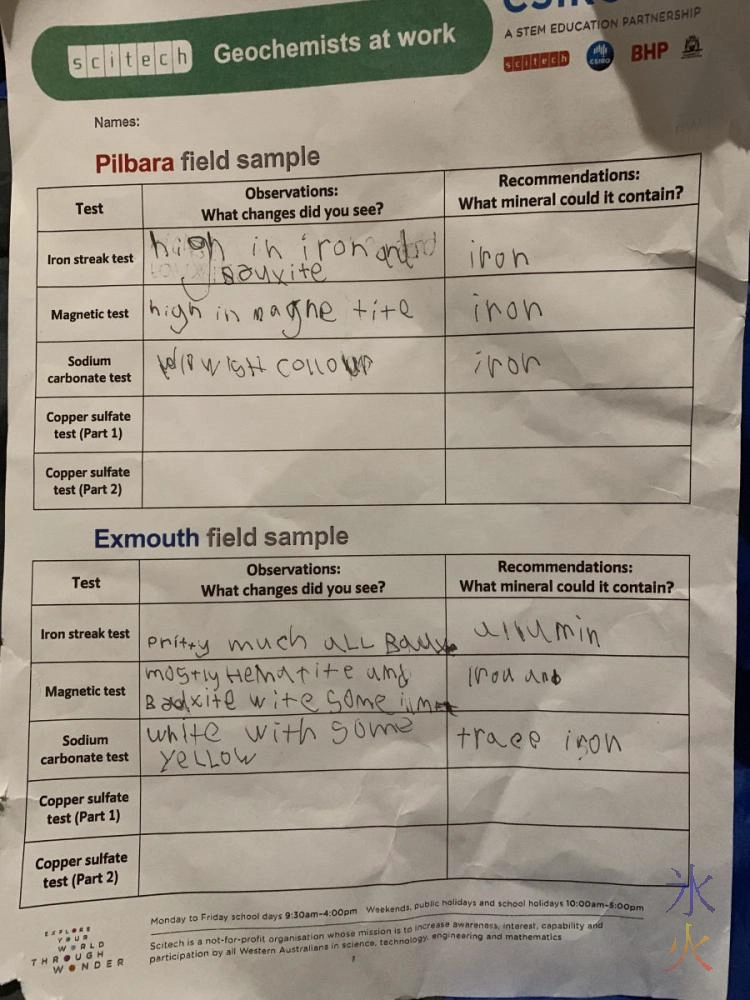 scitech
Geochemists at work
A STEM EDUCATION PARTNERSHIP
scitech
CSIRO
BHP
Names:
Pilbara field sample
Test
Observations:
What changes did you see?
Recommendations:
What mineral could it contain?
Iron streak test
high in iron and
Bauxite
iron
Magnetic test
high in magne tite
iron
Sodium
carbonate test
collour
iron
Copper sulfate
test (Part 1)
Copper sulfate
test (Part 2)
Exmouth field sample
Test
Observations:
What changes did you see?
Recommendations:
What mineral could it contain?
Iron streak test
pritty much aLL Baux
allumin
Magnetic test
mostly Hematite and
Bauxite wite some
Iron and
Sodium
carbonate test
white with some
YELLOW
trace iron
Copper sulfate
test (Part 1)
Copper sulfate
test (Part 2)
EXPLORE
YOUR
WORLD
THROUGH
WONDER
Monday to Friday school days 9:30am-4:00pm Weekends, public holidays and school holidays 10:00am-5:00pm
Scitech is a not-for-profit organisation whose mission is to increase awareness, interest, capability and
participation by all Western Australians in science, technology, engineering and mathematics
氷
火